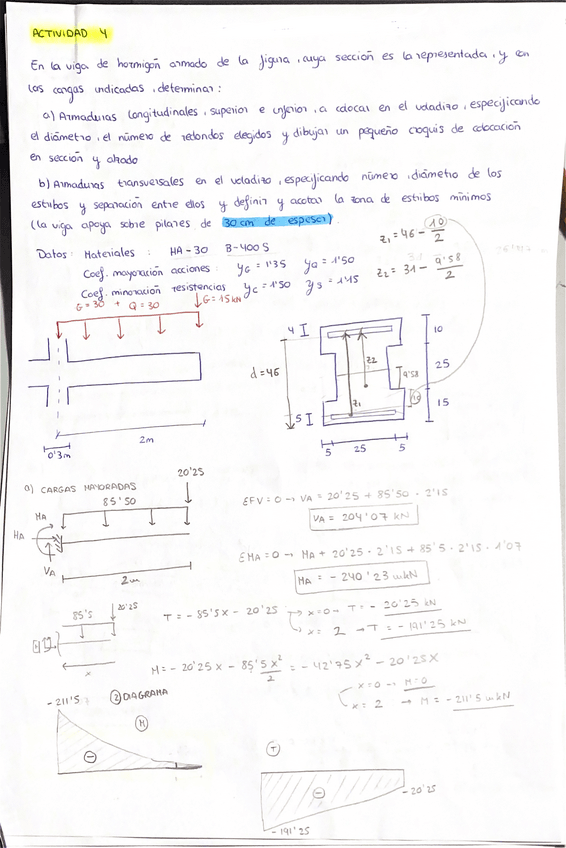 ACTIVIDAD 4
En la viga de hormigón armado de la figura, cuya sección es la representada, y con
las cargas indicadas, determinar:
a) Armaduras longitudinales, superior e inferior, a colocar en el voladizo, especificando
el diámetro, el número de redondos elegidos y dibujar un pequeño croquis de colocación
en sección y alzado
b) Armaduras transversales en el voladizo, especificando número, diámetro de los
estribos y separación entre ellos y definir y acotar la zona de estribos mínimos
(la viga apoya sobre pilares de 30 cm de espesor).
Datos: Materiales: HA-30 B-400 S
Coef. mayoración acciones: γG = 1'35 γQ = 1'50
Coef. minoración resistencias γc = 1'50 γs = 1'15
z1 = 46 - 10/2
z2 = 31 - 9'58/2
G = 30 + Q = 30
G = 15 kN
2m
0'3m
4
d = 46
5
z1
z2
9'58
10
10
25
15
5 25 5
a) CARGAS MAYORADAS
20'25
85'50
MA
HA
VA
2m
ΣFV = 0 → VA = 20'25 + 85'50 · 2'15
VA = 204'07 kN
ΣMA = 0 → MA + 20'25 · 2'15 + 85'5 · 2'15 · 1'07
MA = - 240'23 mkN
85'5
20'25
x
T = - 85'5x - 20'25
x=0 → T = - 20'25 kN
x = 2 → T = - 191'25 kN
M = - 20'25x - 85'5x²/2 = - 42'75x² - 20'25x
x=0 → M=0
x = 2 → M = - 211'5 mkN
- 211'5
② DIAGRAMA
M
-
T
-
- 20'25
- 191'25